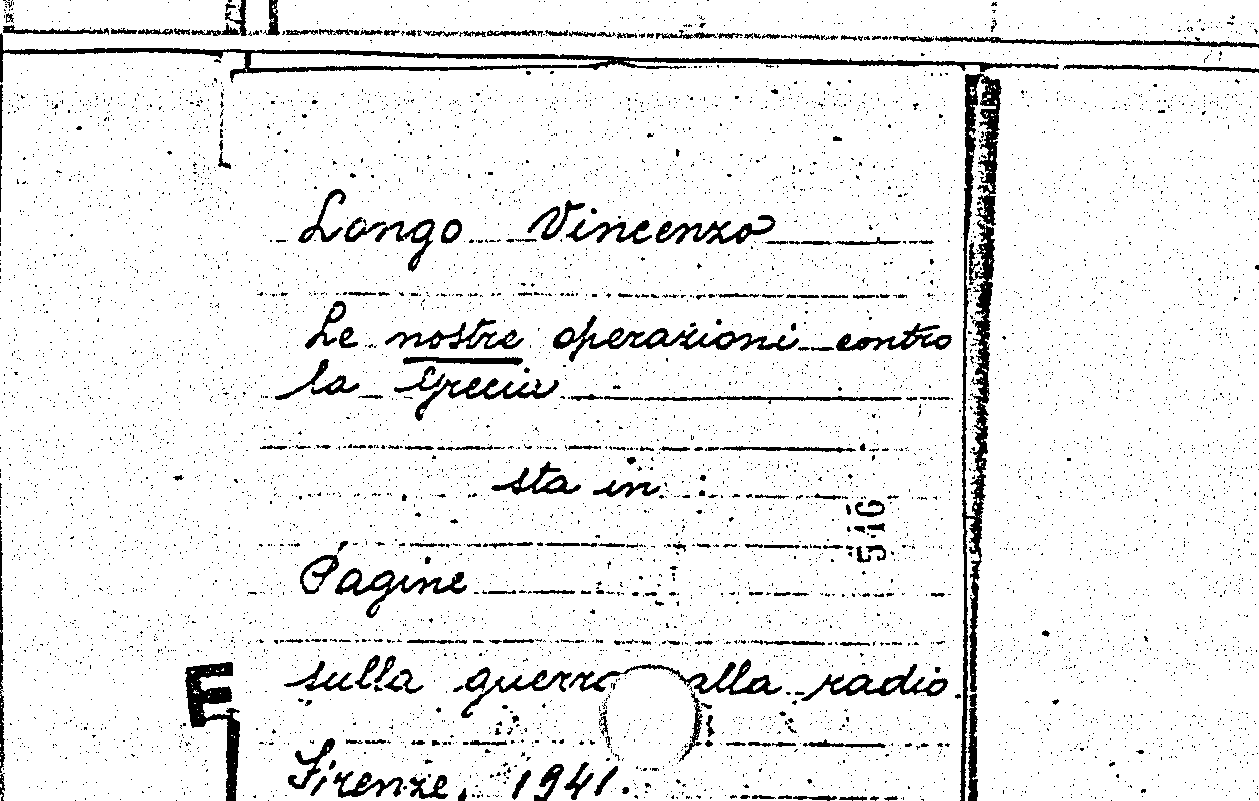 Longo Vincenzo
Le nostre operazioni contro
la Grecia
sta in :
546
Pagine
sulla guerra alla radio.
F
Firenze, 1941.